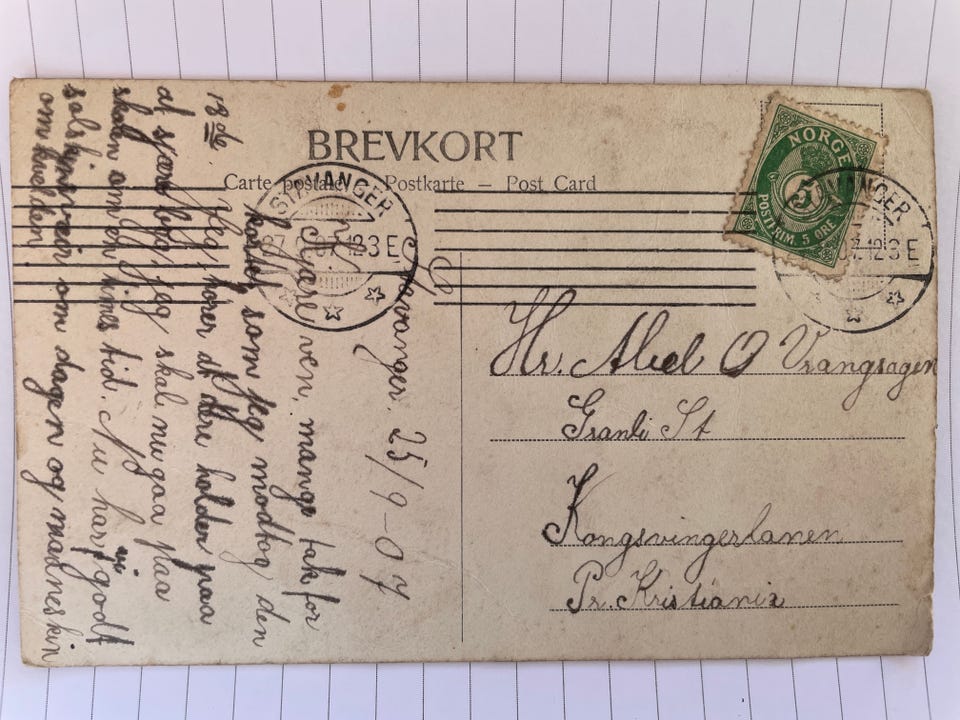 BREVKORT
Carte postale – Postkarte – Post Card
NORGE
5
POSTFRIM. 5 ØRE
STAVANGER
07.123 E
Stavanger. 25/9-07
Kjære ven, mange tak for
kortet som jeg modtog den
18de. Jeg hører at dere holder paa
at jeg skal nu gaa paa
skolen om en times tid. Nu har vi godt
solskinsveir om dagen og maaneskin
om kvelden
Hr. Abel O Vrangsagen
Granli St
Kongsvingerbanen
Pr. Kristiania